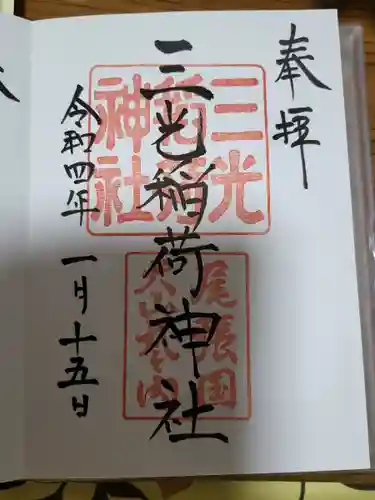 奉拝
三光稲荷神社
令和四年 一月十五日
三光
稲荷
神社
尾張国
犬山